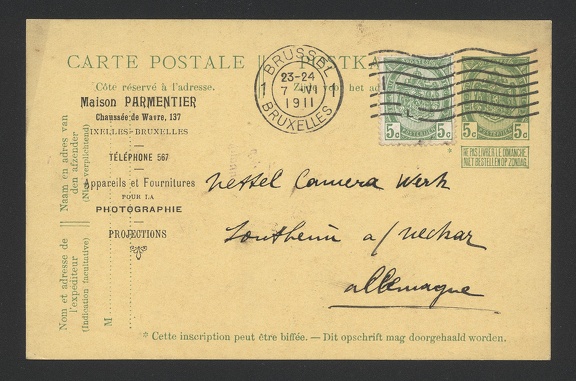 CARTE POSTALE || POSTKA
Côte réservé à l'adresse.
Zijde voor het ad
Maison PARMENTIER
Chaussée de Wavre, 137
IXELLES-BRUXELLES
TÉLÉPHONE 567
Appareils et Fournitures
POUR LA
PHOTOGRAPHIE
PROJECTIONS
BRUSSEL
1 23-24 1
7 VI
1911
BRUXELLES
5c 5c
5c 5c
NE PAS LIVRER LE DIMANCHE
NIET BESTELLEN OP ZONDAG
Nettel Camera Werk
Sontheim a/Neckar
Allemagne
Naam en adres van
den afzender
(Niet verplichtend)
Nom et adresse de
l'expéditeur
(Indication facultative)
M
* Cette inscription peut être biffée. — Dit opschrift mag doorgehaald worden.